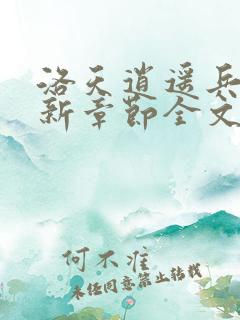 洛天逍遥兵
新章节全文
何不准
未经同意禁止转载